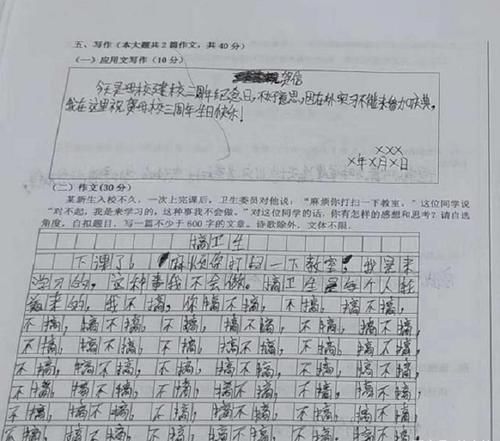 五、写作(本大题共2篇作文,共40分)
(一)应用文写作(10分)
贺信
今天是母校建校三周年纪念日,不好意思,因在外实习不能来参加庆典,
我在这里祝贺母校三周年生日快乐!
XXX
X年X月X日
(二)作文(30分)
某新生入校不久,一次上完课后,卫生委员对他说:“麻烦你打扫一下教室。”这位同学说
“对不起,我是来学习的,这种事我不会做。”对这位同学的话,你有怎样的感想和思考?请自选
角度,自拟题目,写一篇不少于600字的文章。诗歌除外,文体不限.
搞卫生
下课了!“麻烦你打扫一下教室,我是来
学习的,这种事我不会做。搞卫生是每个人都
来的,我不搞,你搞不搞,不搞,搞不搞,
不搞,搞不搞,不搞,搞不搞,不搞,搞不搞,
不搞,搞不搞,不搞,搞不搞,不搞,搞不搞,
不搞,搞不搞,不搞,搞不搞,不搞,搞不搞,
不搞,搞不搞,不搞,搞不搞,不搞,搞不搞,
不搞,搞不搞,不搞,搞不搞,不搞,搞不搞,
不搞,搞不搞,不搞,搞不搞,不搞,搞不搞,